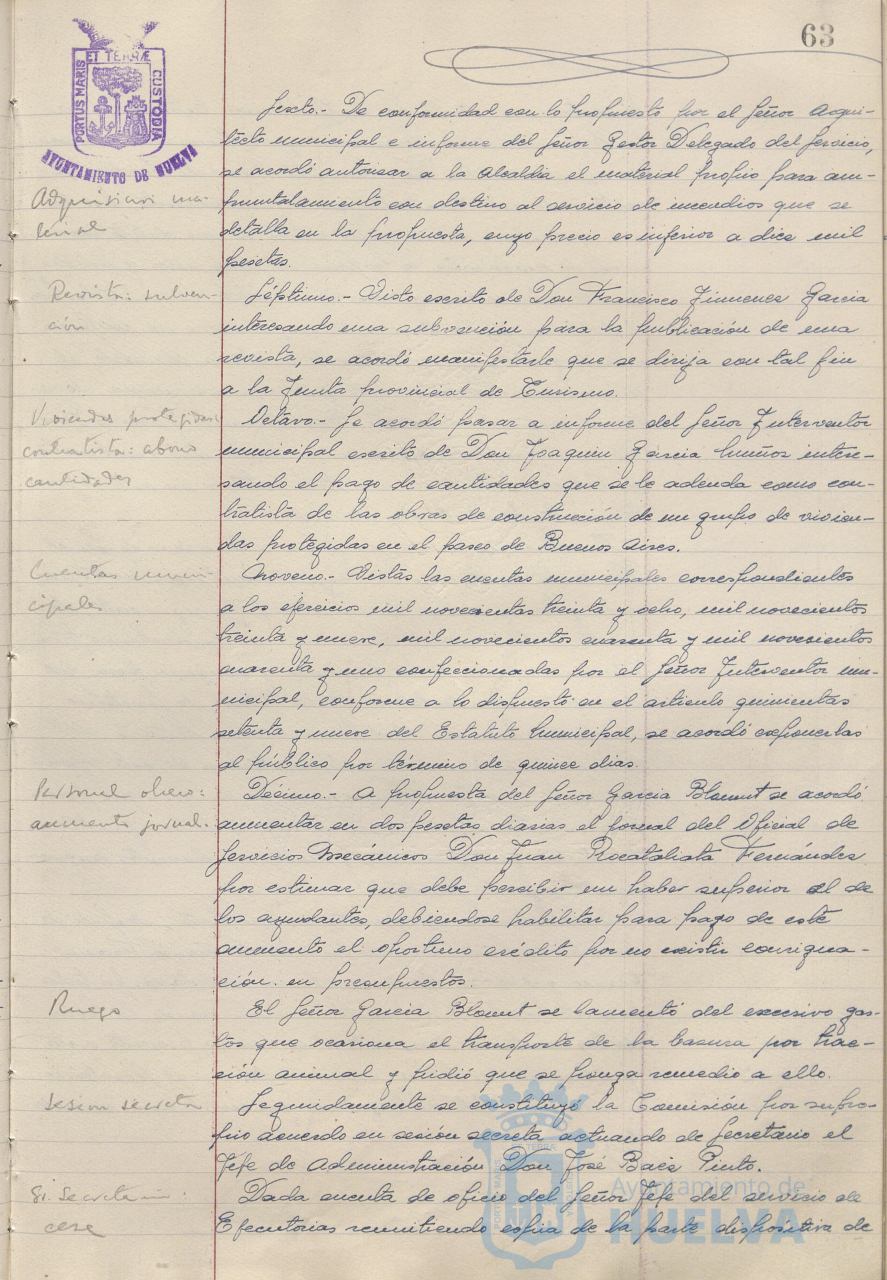 63
PORTUS MARIS ET TERRÆ CUSTODIA
AYUNTAMIENTO DE HUELVA
Sexto.- De conformidad con lo propuesto por el Señor Arqui-
tecto municipal e informe del Señor Gestor Delegado del Servicio,
se acordó autorisar a la Alcaldia el material propio para am-
Adquisicion ma-
puntalamiento con destino al servicio de incendios que se
terial
detalla en la propuesta, cuyo precio es inferior a dies mil
pesetas.
Revista: subven-
Séptimo.- Visto escrito de Don Francisco Jimenes Garcia
ción
interesando una subvención para la publicación de una
revista, se acordó manifestarle que se dirija con tal fin
a la Junta provincial de Turismo.
Viviendas protegidas
Octavo.- Se acordó pasar a informe del Señor Interventor
contratista: abono
municipal escrito de Don Joaquin Garcia Muños intere-
cantidades
sando el pago de cantidades que se le adeuda como con-
tratista de las obras de construcción de un grupo de vivien-
das protegidas en el paseo de Buenos Aires.
Cuentas muni-
Noveno.- Vistas las cuentas municipales correspondientes
cipales
a los ejercicios mil novecientos treinta y ocho, mil novecientos
treinta y nueve, mil novecientos cuarenta y mil novecientos
cuarenta y uno confeccionadas por el Señor Interventor mu-
nicipal, conforme a lo dispuesto en el articulo quinientas
setenta y nueve del Estatuto Municipal, se acordó exponerlas
al público por término de quince dias.
Personal obrero:
Décimo.- A propuesta del Señor Garcia Blount se acordó
aumento jornal.
aumentar en dos pesetas diarias el jornal del Oficial de
Servicios Mecánicos Don Juan Rocatallata Fernándes
por estimar que debe percibir un haber superior al de
los ayudantes, debiendose habilitar para pago de este
aumento el oportuno crédito por no existir consigna-
ción en presupuestos.
Ruego
El Señor Garcia Blount se lamentó del excesivo gas-
tos que ocasiona el transporte de la basura por trac-
ción animal y pidió que se ponga remedio a ello.
Sesion secreta
Seguidamente se constituyó la Comisión por su pro-
pio acuerdo en sesión secreta actuando de Secretario el
Jefe de Administración Don José Baes Pinto.
Sr. Secretario:
Dada cuenta de oficio del Señor Jefe del servicio de
cese
Ejecutorias remitiendo copia de la parte dispositiva de
Ayuntamiento de
HUELVA